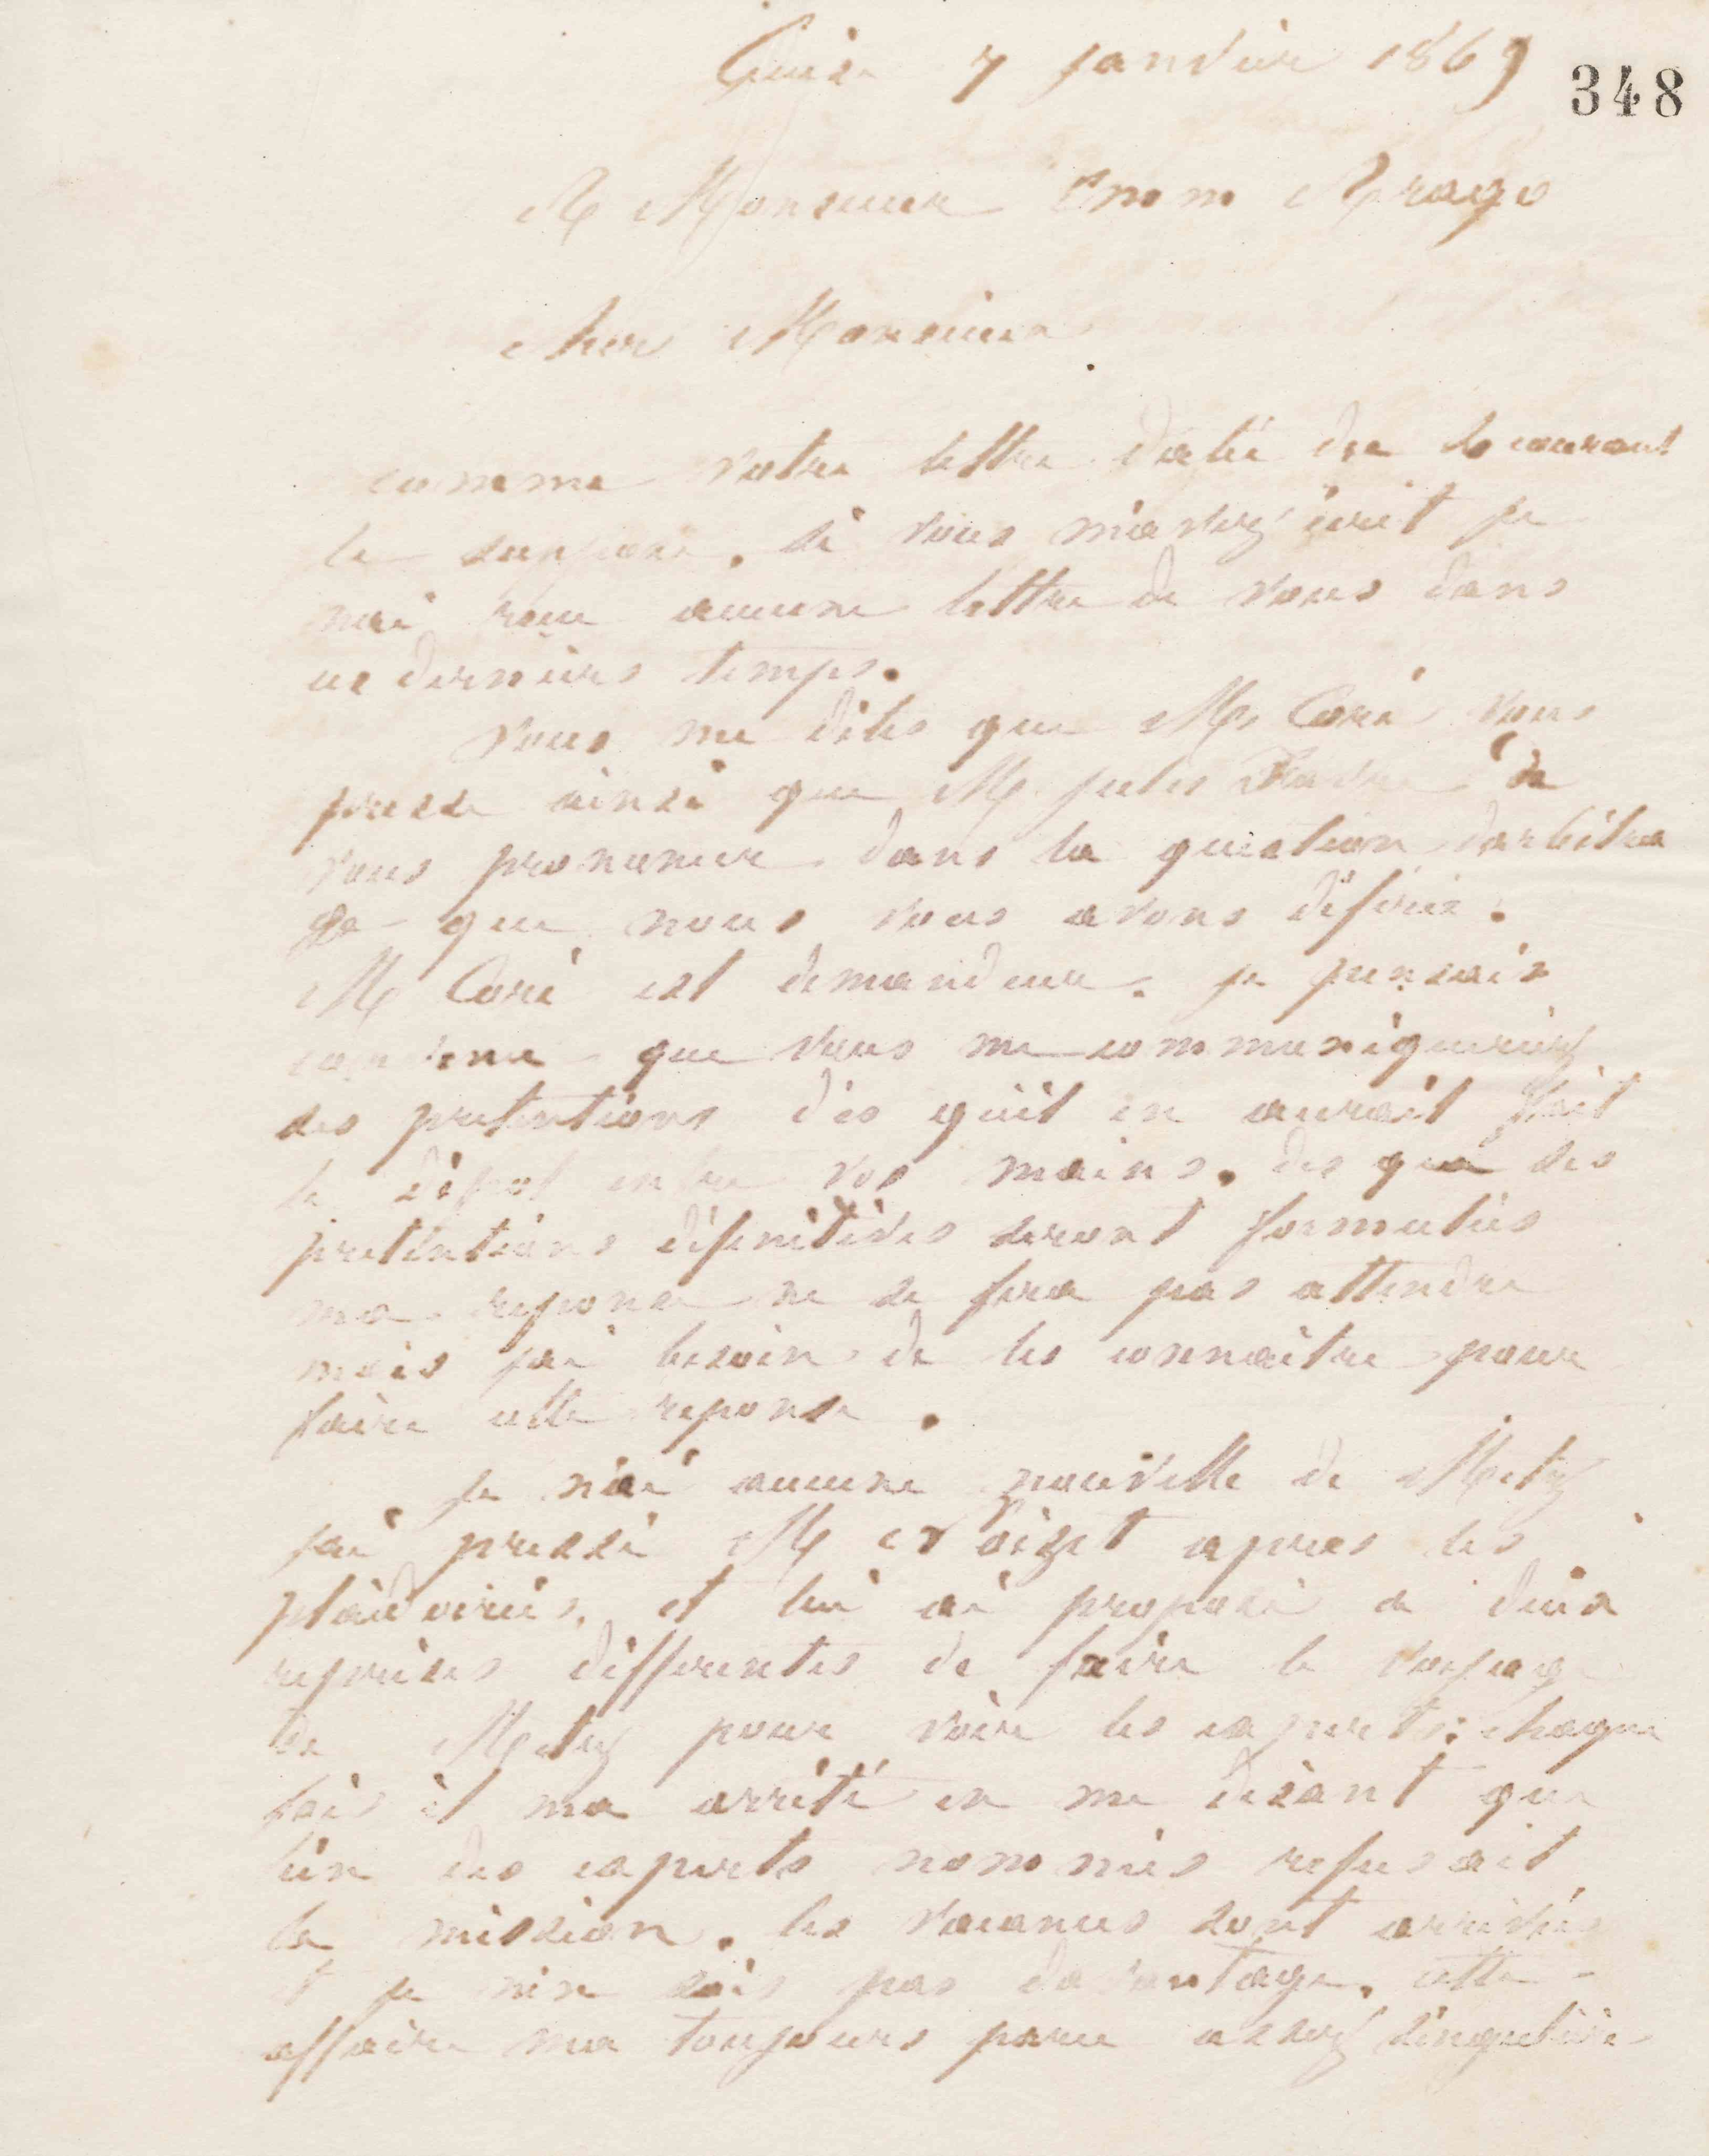 Guise 7 janvier 1869
348
A Monsieur Emm Arago
cher Monsieur
comme votre lettre datée du courant
le suppose, si vous m'avez écrit je
nai reçu aucune lettre de vous dans
ces derniers temps.
vous me dites que Mr Coré vous
presse ainsi que M. jules Favre de
vous prononcer dans la question darbitra
ge que nous vous avons déférée.
M Coré est demandeur. je pensais
comme que vous me communiqueriez
ses pretentions dès quil en aurait fait
le dépot entre vos mains. des que ses
pretentions définitives seront formulées
ma reponse ne se fera pas attendre
mais jai besoin de les connaitre pour
faire cette reponse.
je n'ai aucune nouvelle de Metz
jai pressé M Noizet apres les
plaidoiries, et lui ai proposé a deux
reprises differentes de faire le voyage
de Metz pour voir les experts; chaque
fois il ma arrêté en me disant que
lun des experts nommés refusait
la mission. les vacances sont arrivées
et je nen sais pas davantage. cette
affaire ma toujours paru assez singulière